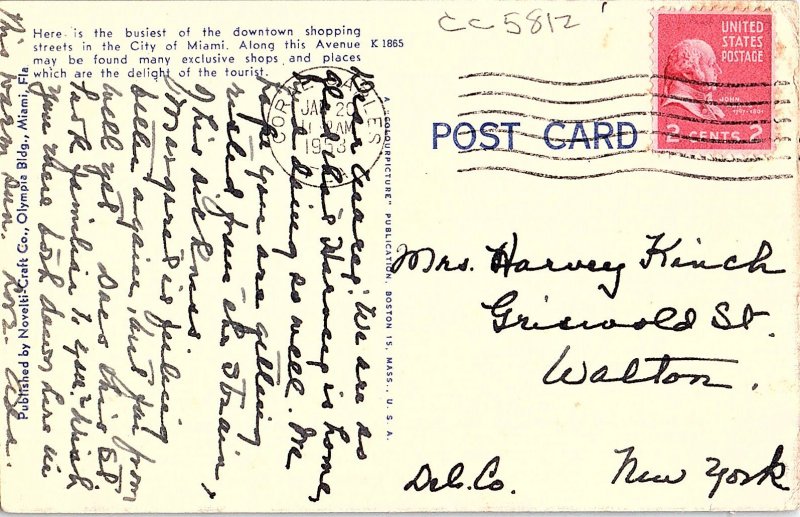 CC5812
Here is the busiest of the downtown shopping
streets in the City of Miami. Along this Avenue
may be found many exclusive shops and places
which are the delight of the tourist.
K 1865
UNITED
STATES
POSTAGE
JOHN
2 CENTS 2
CORAL GABLES
JAN 26
AM
1953
POST CARD
A "COLOURPICTURE" PUBLICATION, BOSTON 15, MASS., U. S. A.
Published by Novelti-Craft Co., Olympia Bldg., Miami, Fla
Mrs. Harvey Kinch
Griswold St.
Walton.
Del. Co. New York
We are so
glad that Harvey is home,
& doing so well. We
hope you are getting
rested from the strain,
this sickness.
Margaret is feeling
better again, but far from
well yet. Does this St.
look familiar to you? Wish
you were both down here in
this warm sun. Love Ada.